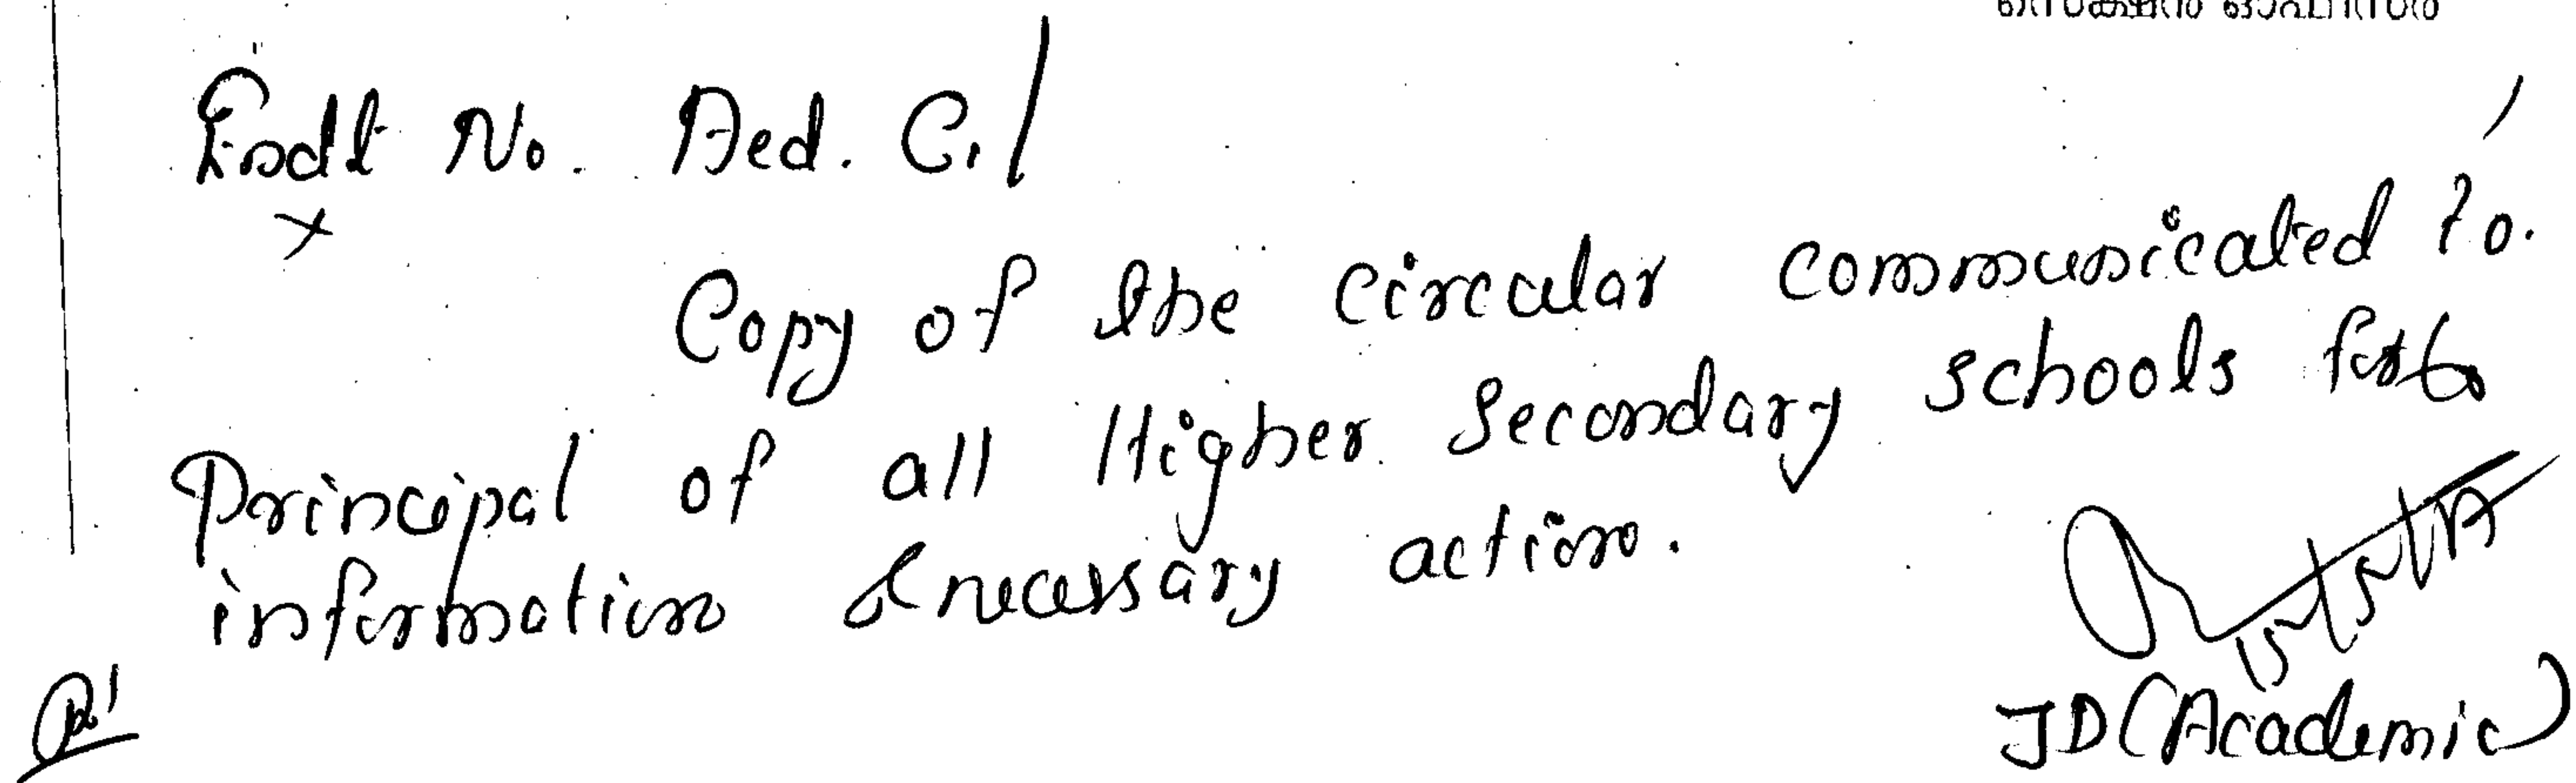 സെക്ഷൻ ഓഫീസർ
Endt No. Acd. C1/
Copy of the circular communicated to.
Principal of all Higher Secondary schools for
information & necessary action.
JD (Academic)